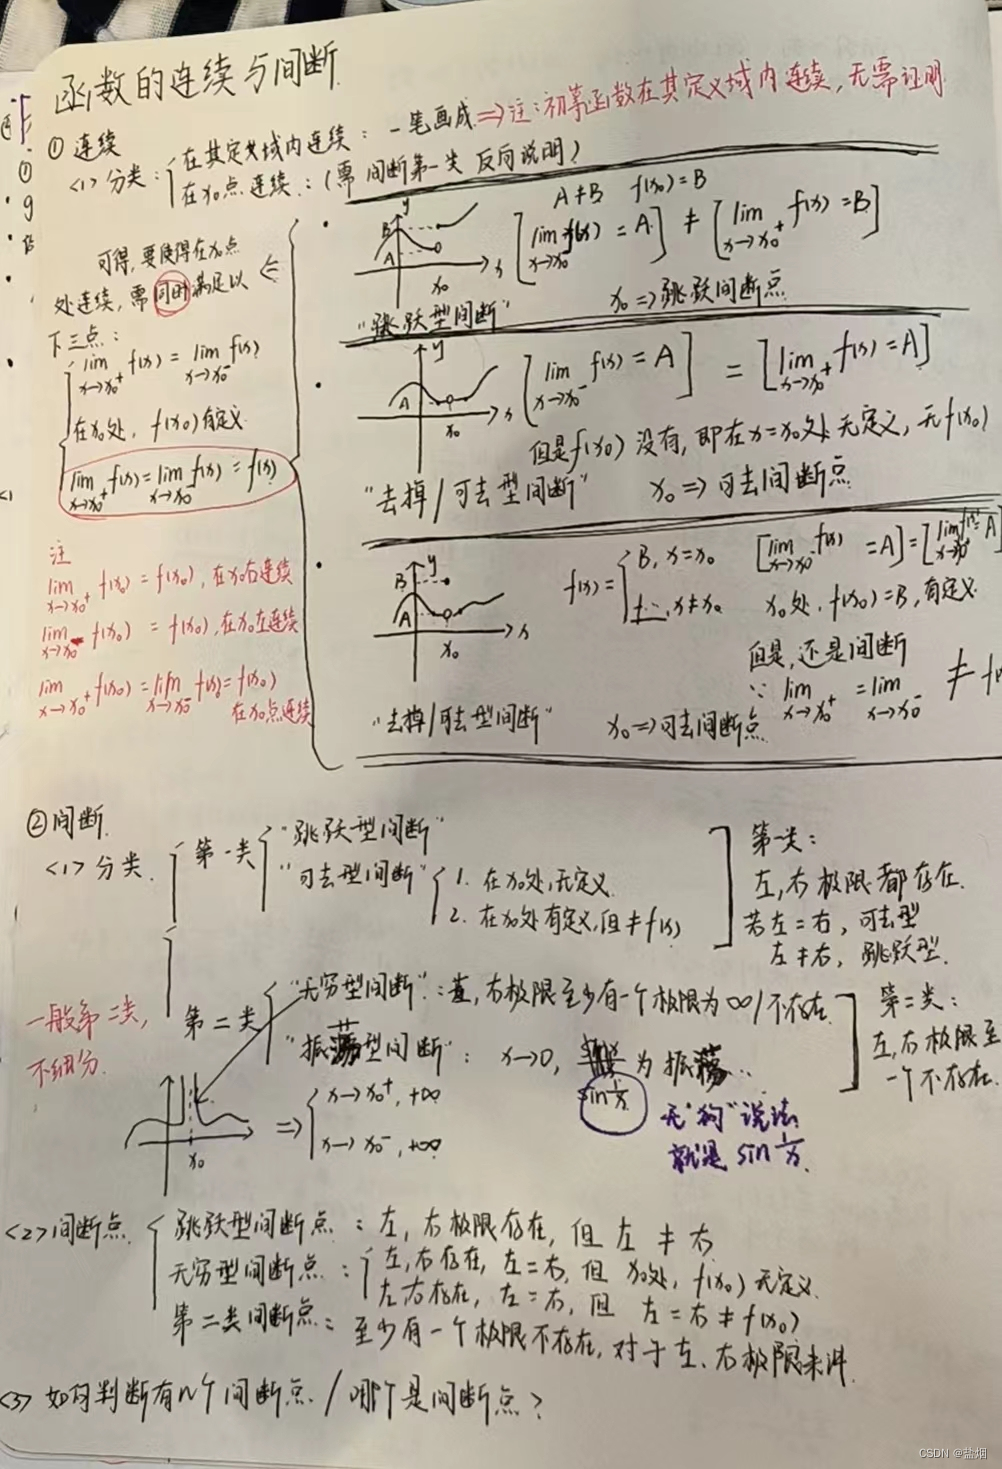 函数的连续与间断
① 连续
<1> 分类：
在其定义域内连续：一笔画成 ⇒ 注：初等函数在其定义域内连续，无需证明
在x₀点连续：（需间断第一类 反向说明）
可得，要使得在x₀点
处连续，需同时满足以
下三点：
lim x→x₀⁺ f(x) = lim x→x₀⁻ f(x)
在x₀处，f(x₀)有定义
lim x→x₀⁺ f(x) = lim x→x₀⁻ f(x) = f(x)
注
lim x→x₀⁺ f(x₀) = f(x₀)，在x₀右连续
lim x→x₀⁻ f(x₀) = f(x₀)，在x₀左连续
lim x→x₀⁺ f(x₀) = lim x→x₀⁻ f(x) = f(x₀)
在x₀点连续
A≠B f(x₀)=B
y B A x₀ x
[lim x→x₀⁻ f(x) = A] ≠ [lim x→x₀⁺ f(x) = B]
"跳跃型间断" x₀ ⇒ 跳跃间断点
y A x₀ x
[lim x→x₀⁻ f(x) = A] = [lim x→x₀⁺ f(x) = A]
但是f(x₀)没有，即在x=x₀处无定义，无f(x₀)
"去掉/可去型间断" x₀ ⇒ 可去间断点
y B A x₀ x
f(x) = { B, x=x₀ [lim x→x₀⁻ f(x) = A] = [lim x→x₀⁺ f(x) = A]
x≠x₀ x₀处，f(x₀)=B，有定义
但是，还是间断
∵ lim x→x₀⁺ = lim x→x₀⁻ ≠
"去掉/可去型间断" x₀ ⇒ 可去间断点
② 间断
<1> 分类
第一类
"跳跃型间断"
"可去型间断"
1. 在x₀处，无定义
2. 在x₀处有定义，但≠f(x)
第一类：
左，右极限都存在
若左=右，可去型
左≠右，跳跃型
一般第二类，
不细分
第二类
"无穷型间断"：左，右极限至少有一个极限为∞/不存在
"振荡型间断"：x→0， 为振荡…
sin 1/x
无"狗"说法
就是 sin 1/x
第二类：
左，右极限至
一个不存在
x₀
⇒ { x→x₀⁺, +∞
x→x₀⁻, +∞
<2> 间断点
跳跃型间断点：左，右极限存在，但左≠右
无穷型间断点：左，右存在，左=右，但x₀处，f(x₀)无定义
左右存在，左=右，但 左=右≠f(x₀)
第二类间断点：至少有一个极限不存在，对于左、右极限来讲
<3> 如何判断有n个间断点/哪个是间断点？
CSDN @盐烟